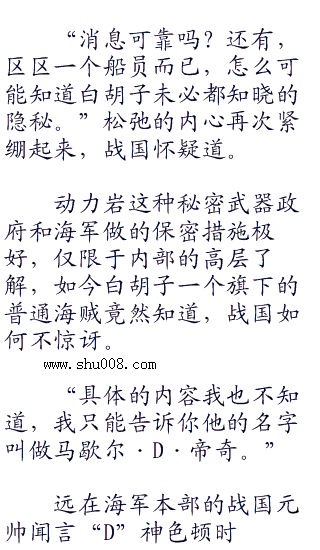 “消息可靠吗？还有，
区区一个船员而已，怎么可
能知道白胡子未必都知晓的
隐秘。”松弛的内心再次紧
绷起来，战国怀疑道。
动力岩这种秘密武器政
府和海军做的保密措施极
好，仅限于内部的高层了
解，如今白胡子一个旗下的
普通海贼竟然知道，战国如
何不惊讶。
www.shu008.com
“具体的内容我也不知
道，我只能告诉你他的名字
叫做马歇尔·D·帝奇。”
远在海军本部的战国元
帅闻言“D”神色顿时